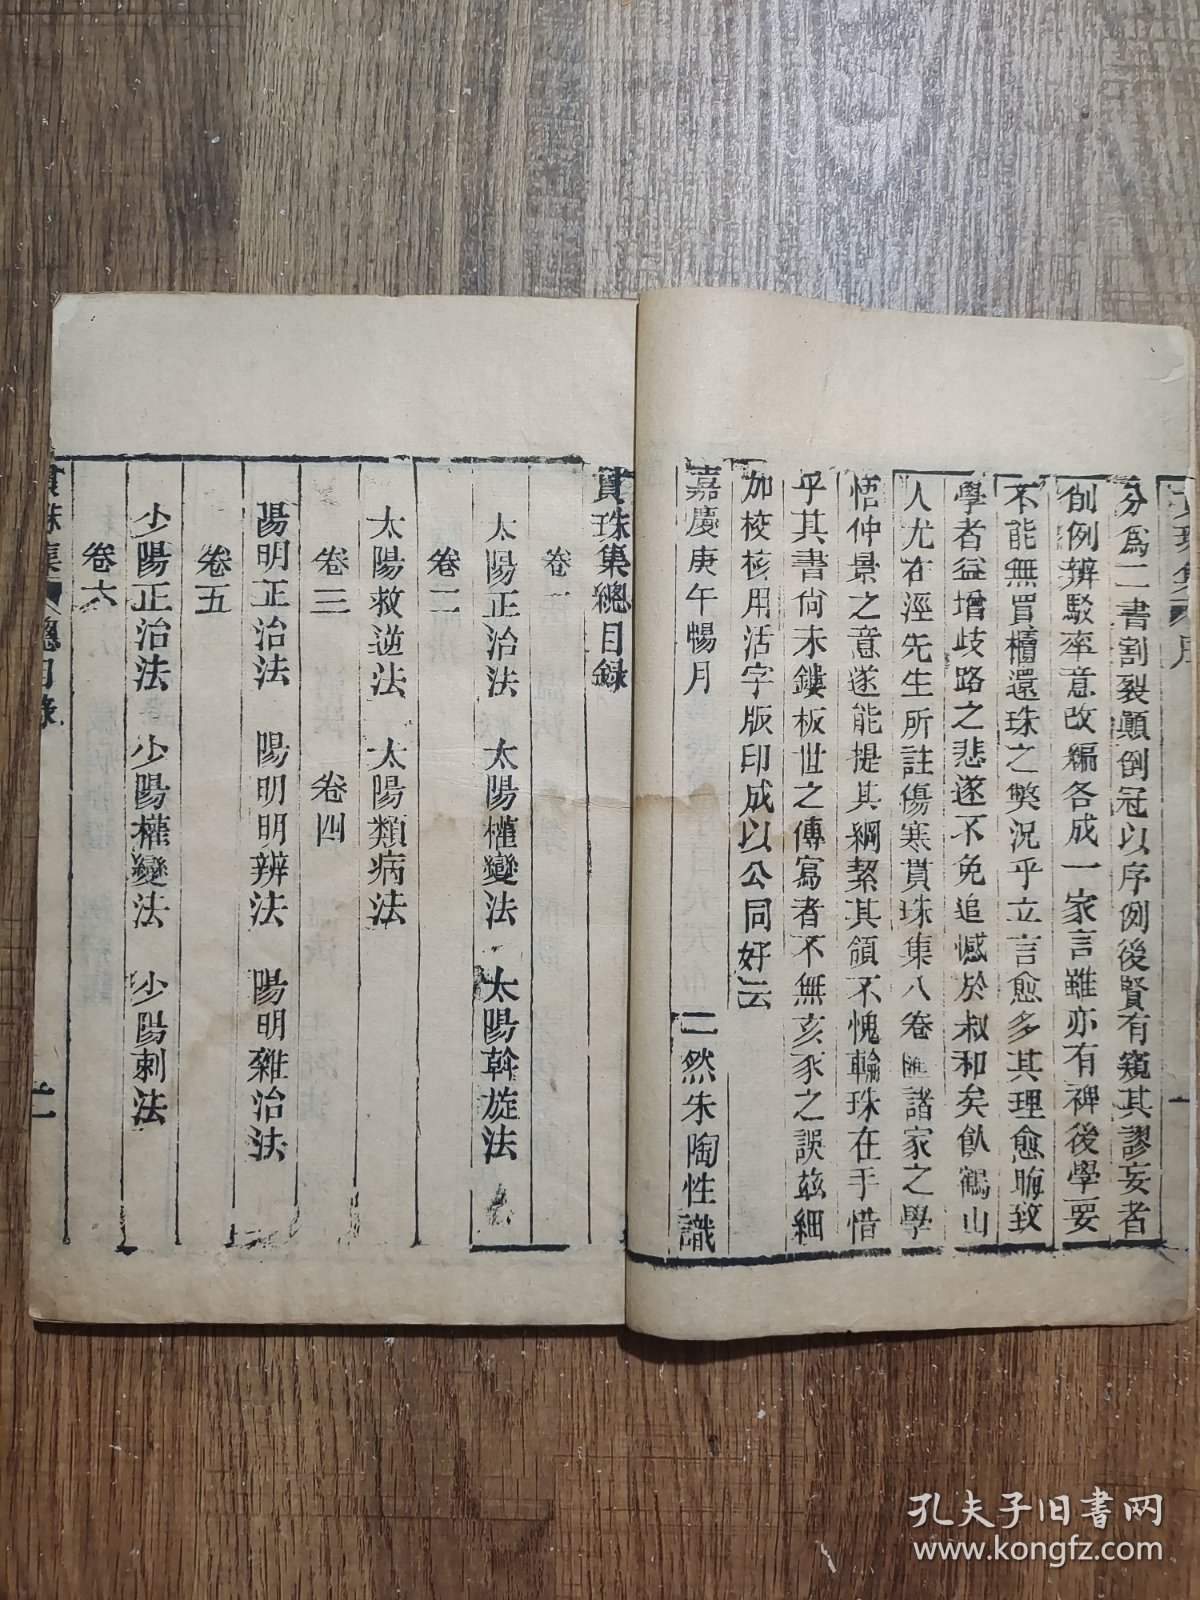 分爲二書割裂顛倒冠以序例後賢有窺其謬妄者
削例辨駁率意改編各成一家言雖亦有裨後學要
不能無買櫃還珠之獘況乎立言愈多其理愈晦致
學者益增歧路之悲遂不免追憾於叔和矣飲鶴山
人尤在涇先生所註傷寒貫珠集八卷匯諸家之學
悟仲景之意遂能提其綱挈其領不愧輪珠在手惜
乎其書尚未鏤板世之傳寫者不無亥豕之誤玆細
加校核用活字版印成以公同好云
嘉慶庚午暢月 二然朱陶性識
貫珠集總目録
卷一
太陽正治法 太陽權變法 太陽斡旋法
卷二
太陽救逆法 太陽類病法
卷三 卷四
陽明正治法 陽明明辨法 陽明雜治法
卷五
少陽正治法 少陽權變法 少陽刺法
卷六
貫珠集 總目錄 二
孔夫子旧书网
www.kongfz.com